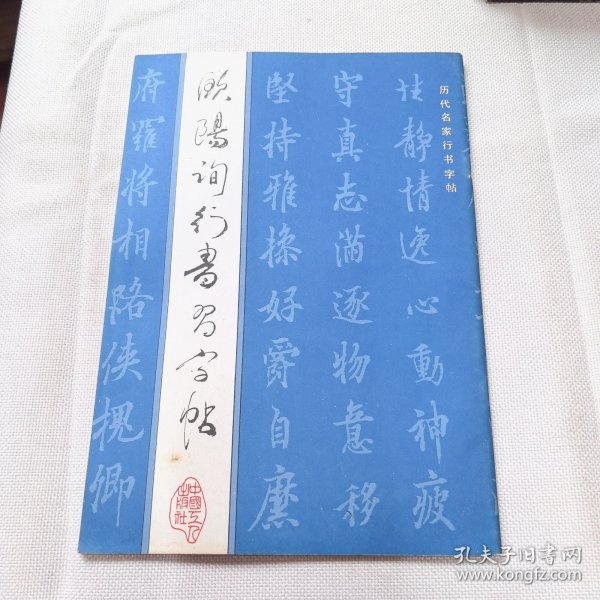 历代名家行书字帖
性静情逸心動神疲
守真志满逐物意移
堅持雅操好爵自縻
欧陽询行書习字帖
中國工人出版社
府羅將相路侠槐卿
孔夫子旧書网
www.kongfz.com